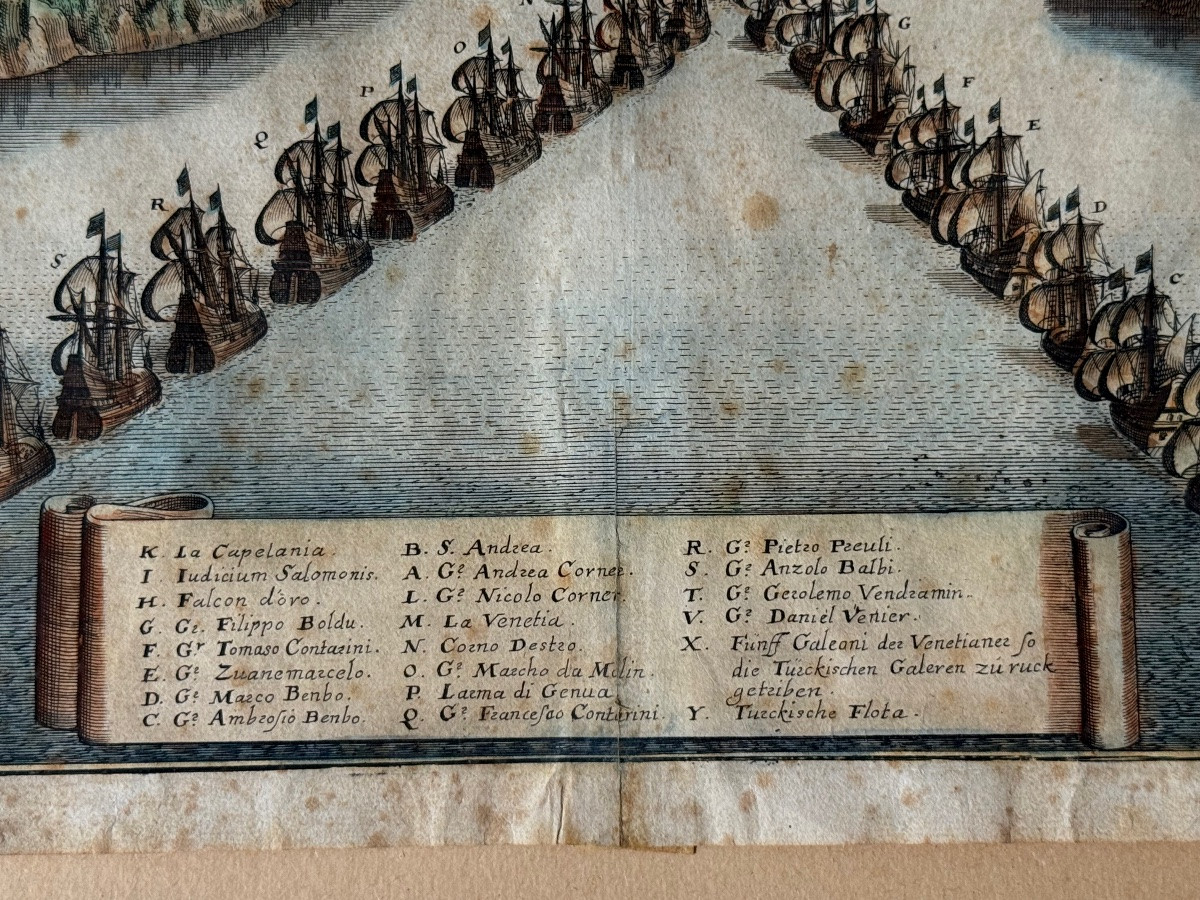 N
O
G
P
F
Q
E
R
D
S
C
K. La Capelania.
I. Iudicium Salomonis.
H. Falcon d'oro.
G. Gr. Filippo Boldu.
F. Gr Tomaso Contarini.
E. Gr Zuanemarcelo.
D. Gr Marco Benbo.
C. Gr Ambrosio Benbo.
B. S. Andrea.
A. Gr Andrea Corner.
L. Gr Nicolo Corner.
M. La Venetia.
N. Corno Destro.
O. Gr Marcho da Molin.
P. Larma di Genua
Q. Gr Francesco Contarini.
R. Gr Pietro Preuli.
S. Gr Anzolo Balbi.
T. Gr Gerolemo Vendramin.
V. Gr Daniel Venier.
X. Funff Galeoni der Venetianer so
die Türckischen Galeren zu ruck
getriben.
Y. Turckische Flota.